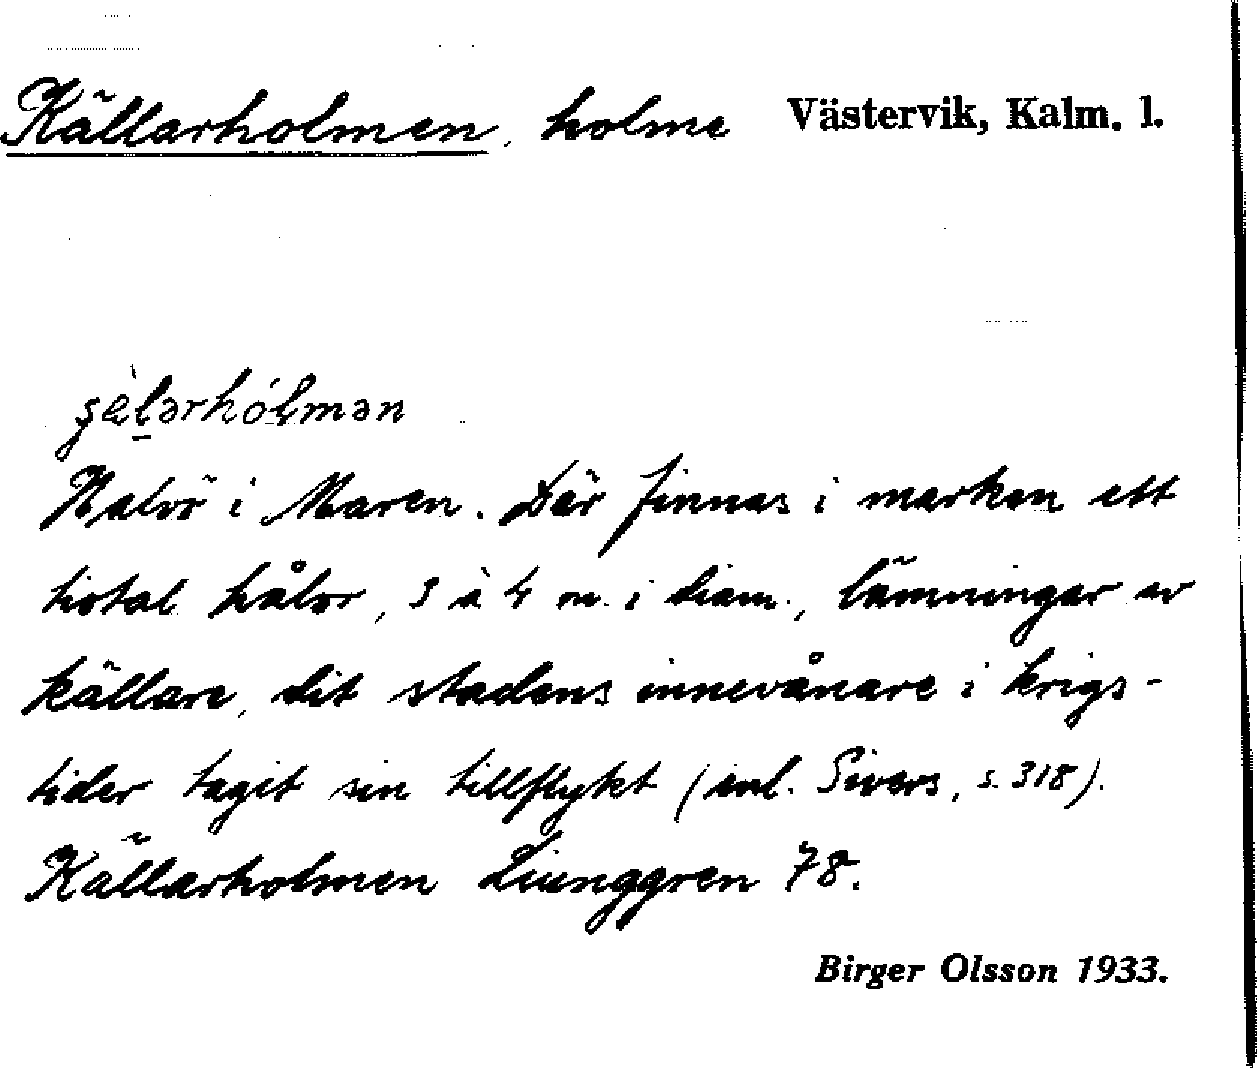 Källarholmen, holme Västervik, Kalm. l.
Halvö i Maren. Där finnas i marken ett
tiotal hålor, 3 à 4 m. i diam., lämningar av
källare, dit stadens innevånare i krigs-
tider tagit sin tillflykt (enl. Sivers, s. 318).
Källarholmen Liunggren 78.
Birger Olsson 1933.